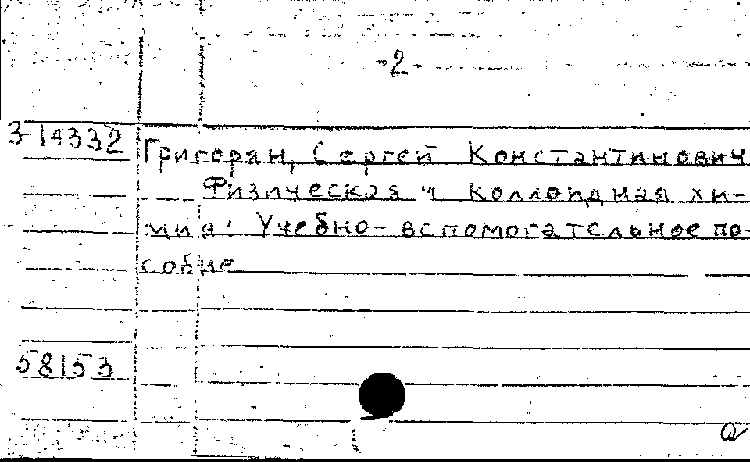 -2-
3-14332
Григорян, Сергей Константинович
Физическая и коллоидная хи-
мия: Учебно-вспомогательное по-
собие
58153